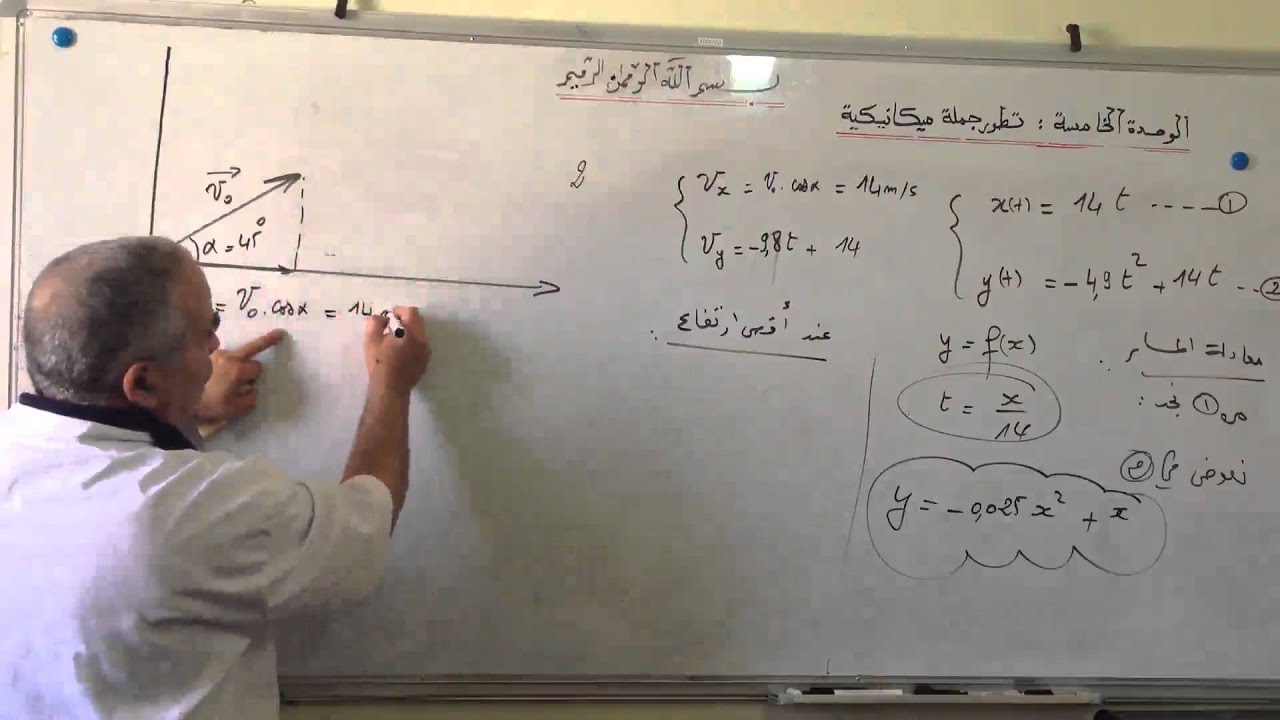 بسم الله الرحمن الرحيم
الوحدة الخامسة : تطور جملة ميكانيكية
v₀
α = 45°
= v₀ . cos α = 14 m
2
vₓ = v₀ . cos α = 14 m/s
v_y = -9,8t + 14
x(t) = 14 t ----- ①
y(t) = -4,9 t² + 14 t -- ②
عند أقصى ارتفاع :
معادلة المسار :
y = f(x)
من ① نجد :
t = x/14
نعوض في ②
y = -0,025 x² + x